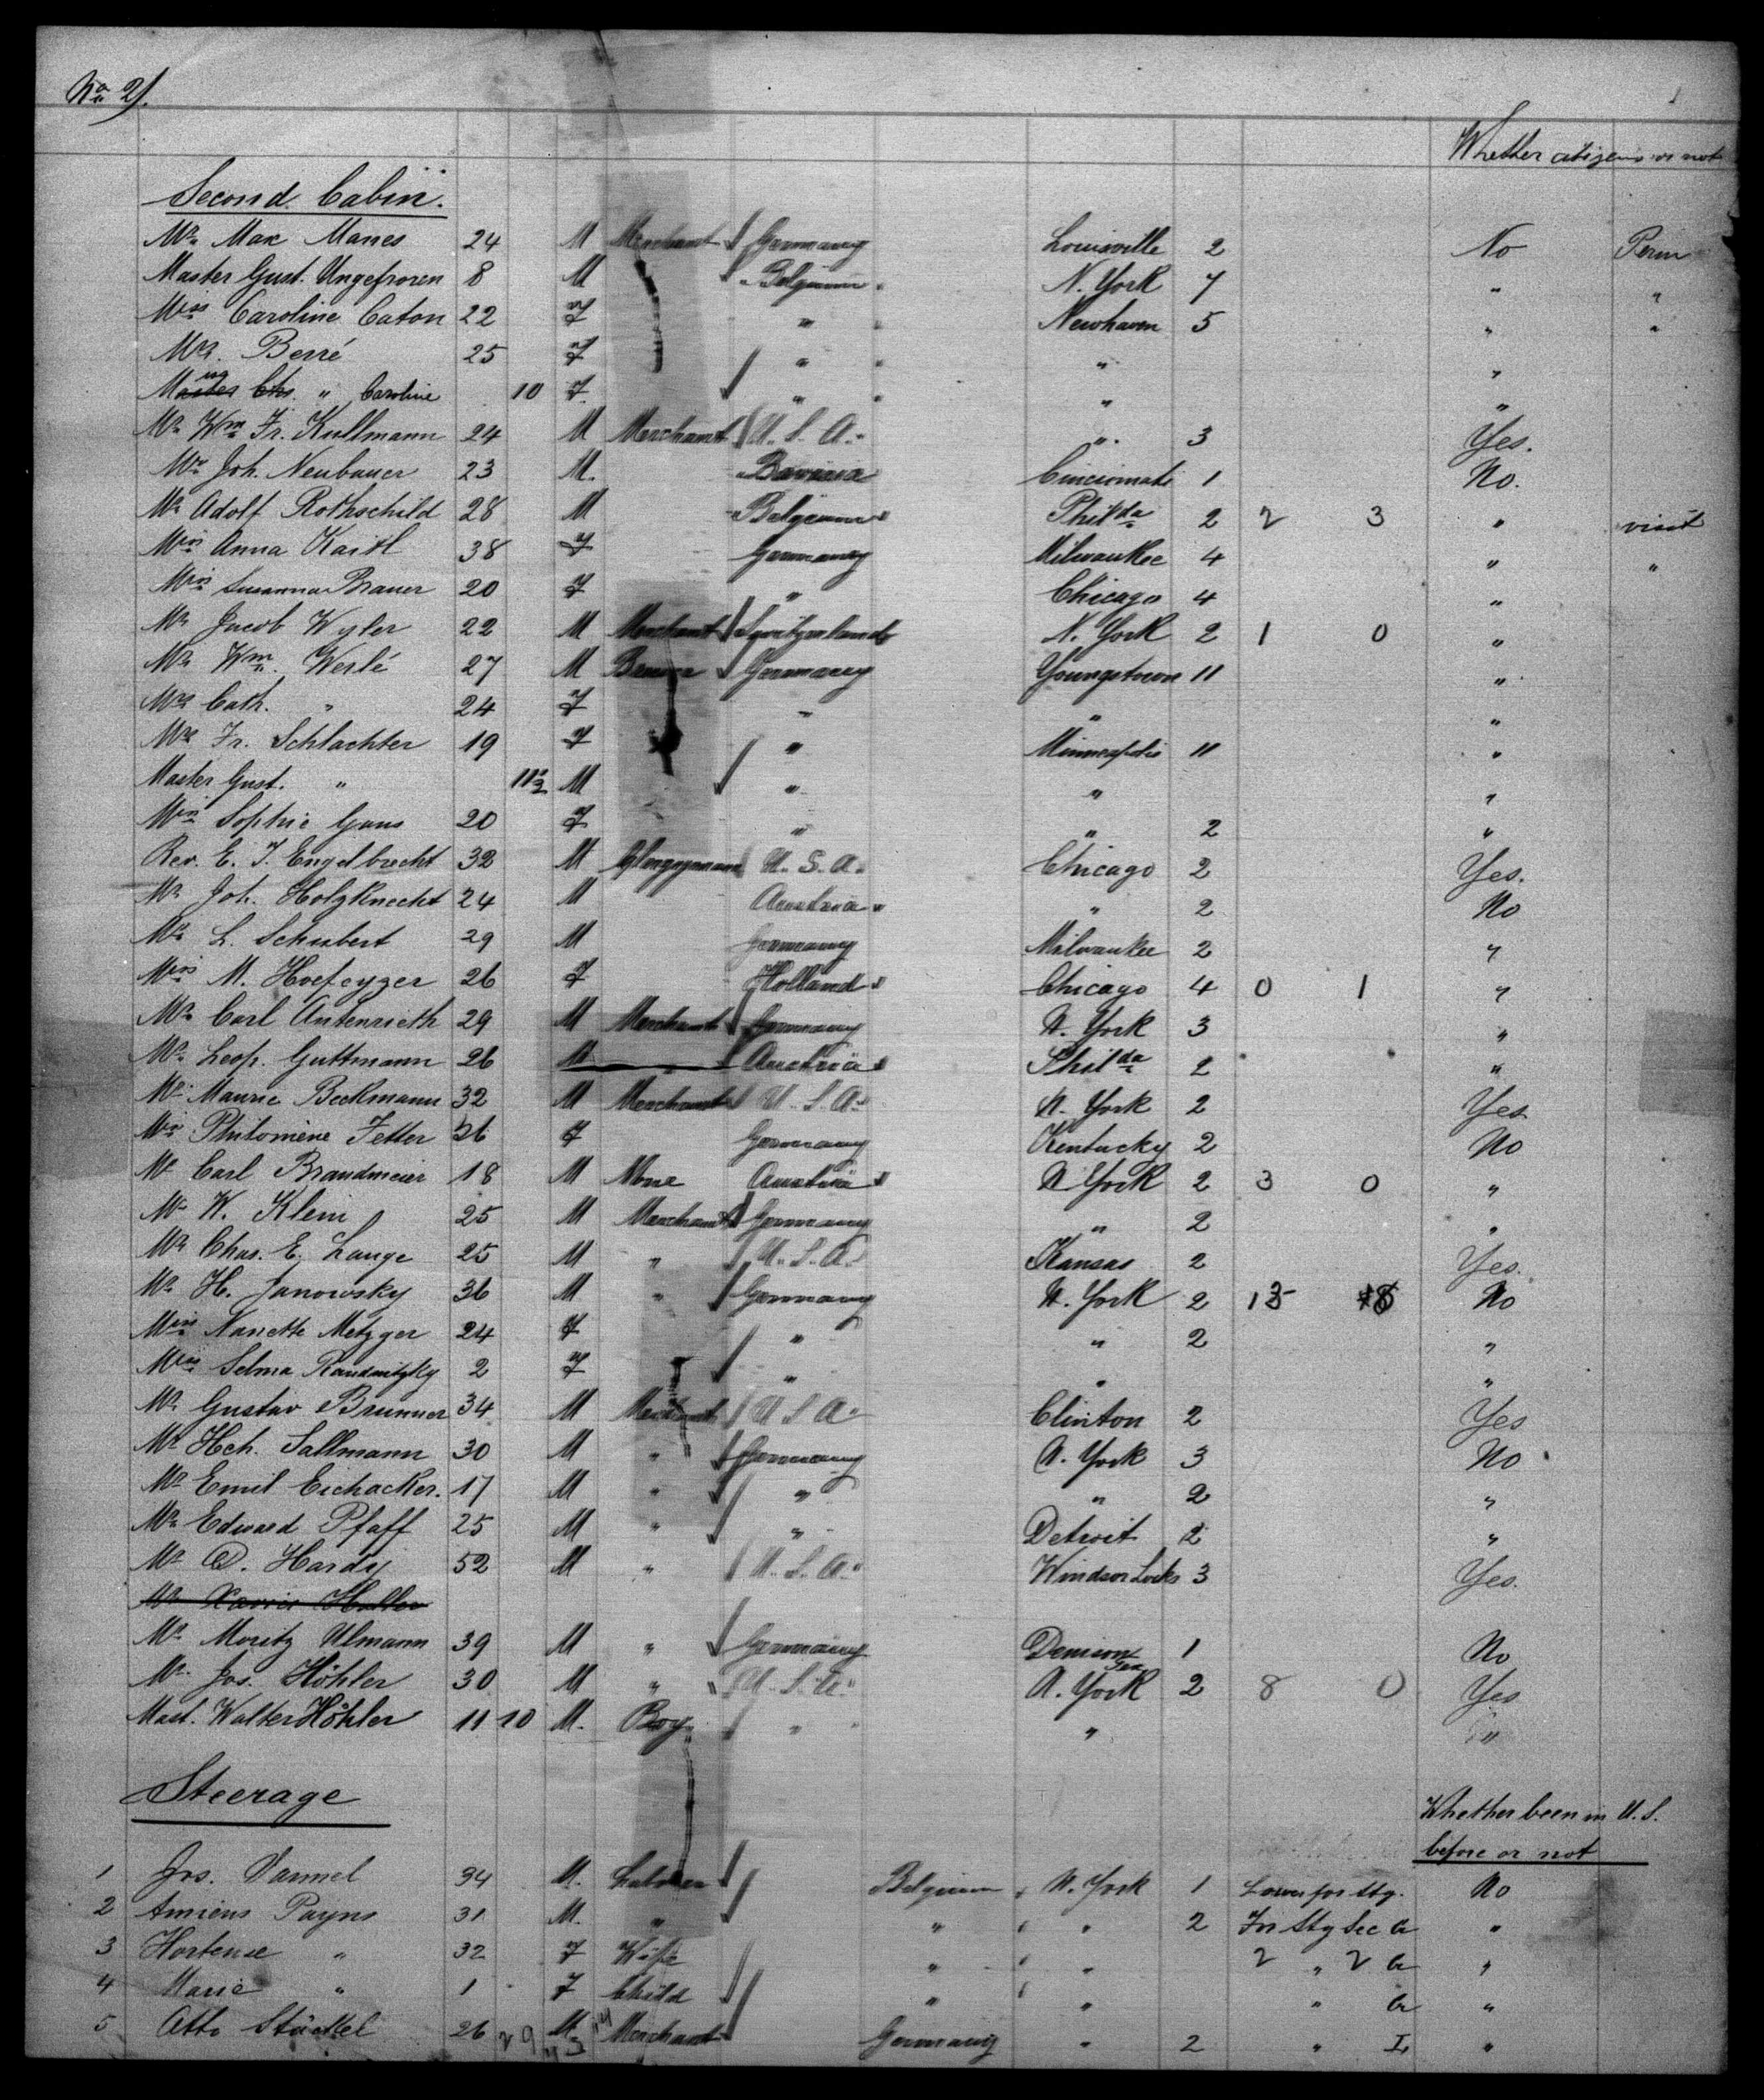 No 2/.
Whether citizens or not
Second Cabin.
Mr. Max Manes 24 M Merchant Germany Louisville 2 No Perm
Master Gust. Ungefroren 8 M Belgium N. York 7 " "
Miss Caroline Caton 22 F " Newhaven 5 " "
Mrs. Berré 25 F " " "
" Caroline 10 F " " "
Mr. Wm Fr. Kullmann 24 M Merchant U. S. A. " 3 Yes.
Mr. Joh. Neubauer 23 M. Bavaria Cincinnati 1 No.
Mr. Adolf Rothschild 28 M Belgium Philda 2 2 3 " visit
Miss Anna Kaisl 38 F Germany Milwaukee 4 " "
Miss Susanna Brauer 20 F " Chicago 4 "
Mr. Jacob Wyler 22 M Merchant Switzerland N. York 2 1 0 "
Mr. Wm. Werlé 27 M Brewer Germany Youngstown 11 "
Mrs Cath. " 24 F " " "
Mrs Fr. Schlachter 19 F " Minneapolis 11 "
Master Gust. " M " " "
Miss Sophie Gans 20 F " " 2 "
Rev. E. J. Engelbrecht 32 M Clergyman U. S. A. Chicago 2 Yes.
Mr. Joh. Holzknecht 24 M Austria " 2 No
Mr. L. Schubert 29 M Germany Milwaukee 2 "
Miss M. Hoefeyzer 26 F Holland Chicago 4 0 1 "
Mr. Carl Autenrieth 29 M Merchant Germany N. York 3 "
Mr. Leop. Guttmann 26 M Austria Philda 2 "
Mr. Mauric Beckmann 32 M Merchant U. S. A. N. York 2 Yes
Miss Philomène Fetter 26 F Germany Kentucky 2 No
Mr. Carl Brandmeier 18 M None Austria N York 2 3 0 "
Mr. W. Klein 25 M Merchant Germany " 2 "
Mr. Chas. E. Lange 25 M " U. S. A. Kansas 2 Yes.
Mr. H. Janowsky 36 M " Germany N. York 2 No
Miss Nanette Metzger 24 F " " 2 "
Miss Selma 2 F " " "
Mr. Gustav Brunner 34 M Merchant U S A Clinton 2 Yes
Mr. Hch. Sallmann 30 M " Germany N. York 3 No
Mr. Emil Eichacker. 17 M " " " 2 "
Mr. Edward Pfaff 25 M " " Detroit 2 "
Mr. D. Hardy 52 M " U. S. A. Windsor Locks 3 Yes.
Mr. Moritz Ulmann 39 M " Germany Denison Tex 1 No
Mr. Jos. Höhler 30 M " U. S. A. N. York 2 8 0 Yes
Mast. Walter Höhler 11 10 M. Boy " " "
Steerage
Whether been in U. S.
before or not
1 Jos. 34 M. Laborer Belgium N. York 1 Lower for Stg. No
2 Amiens Payns 31 M. " " " 2 "
3 Hortense " 32 F Wife " " "
4 Marie " 1 F Child " " "
5 Otto Stäckel 26 M. Merchant Germany " 2 "